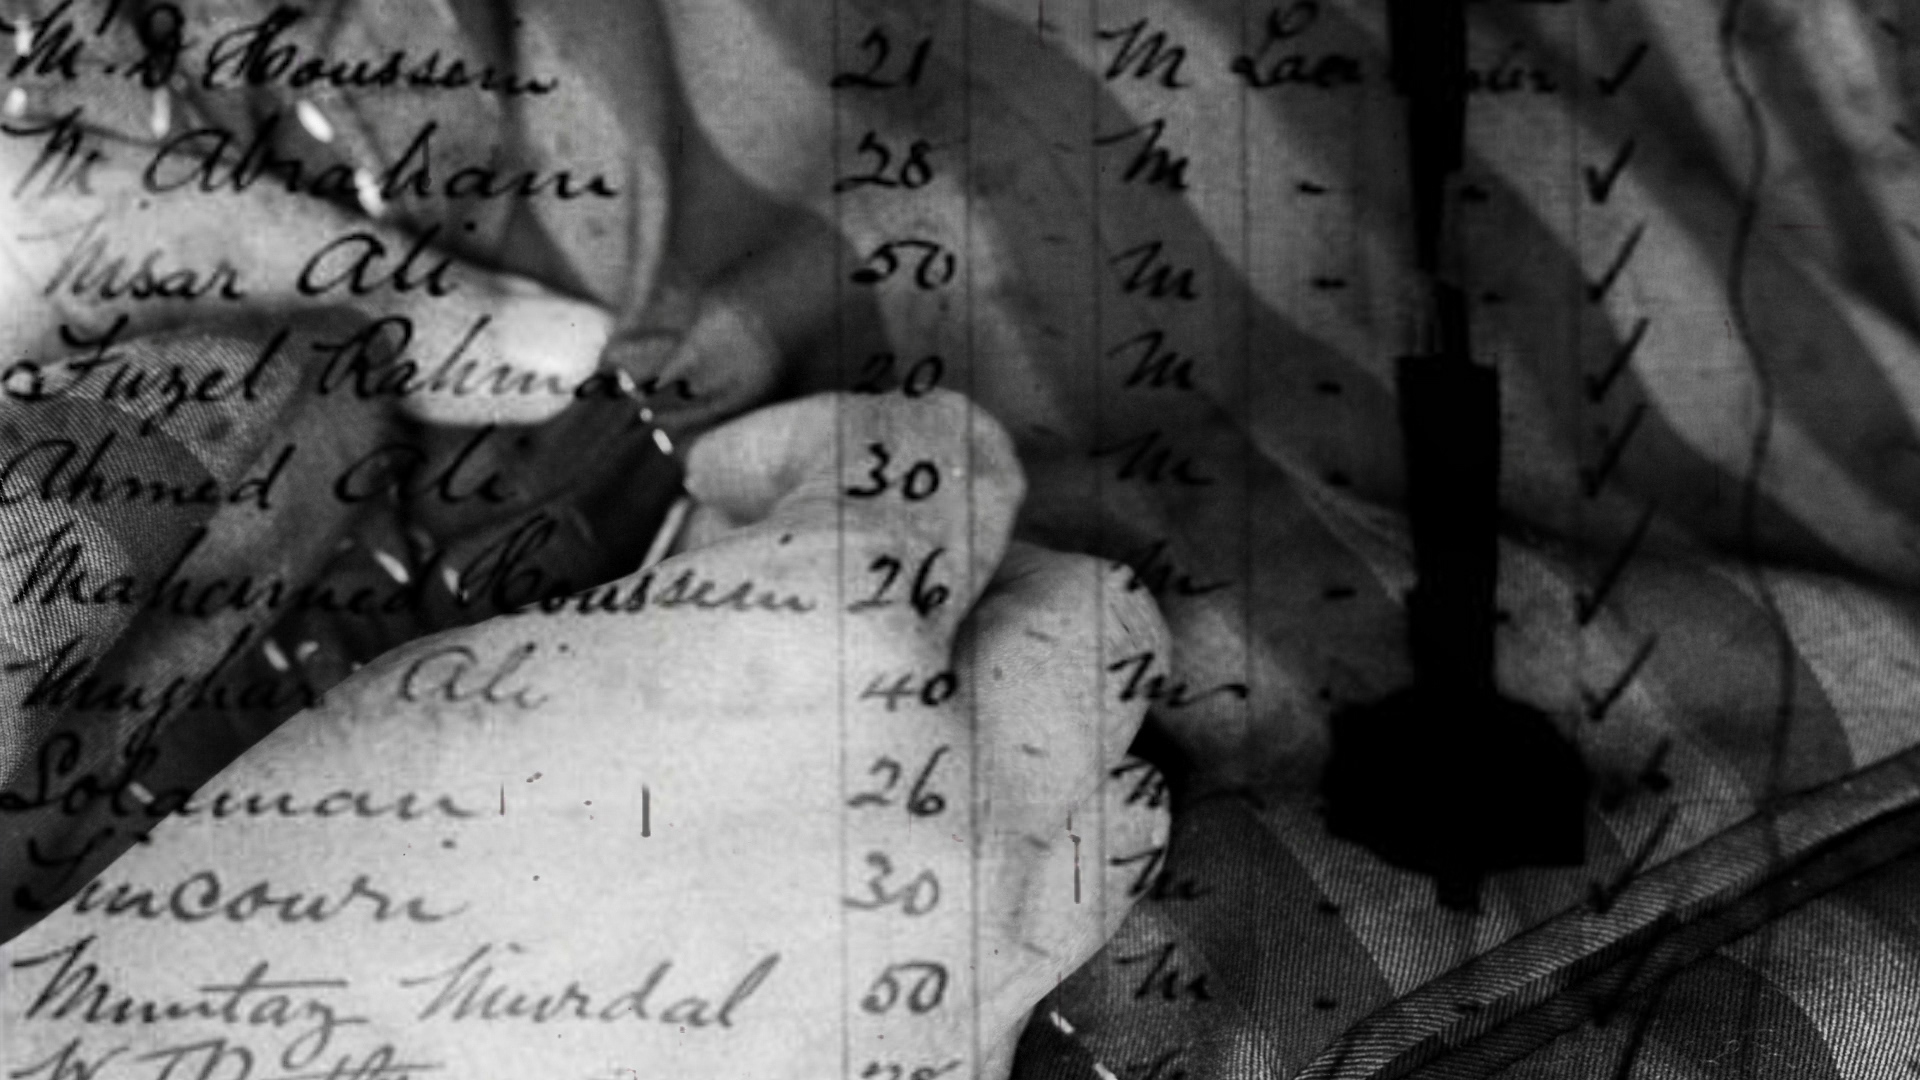 M. D Houssein 21 M
M Abraham 28 M - - ✓
Ali 50 M - - ✓
Fuzel Rahman 20 M - ✓
Ahmed Ali 30 M - ✓
Mahomed Houssein 26 M - - ✓
Ali 40 M - ✓
Solaman 26 M
30 M - ✓
Mumtaz Murdal 50 M - - ✓